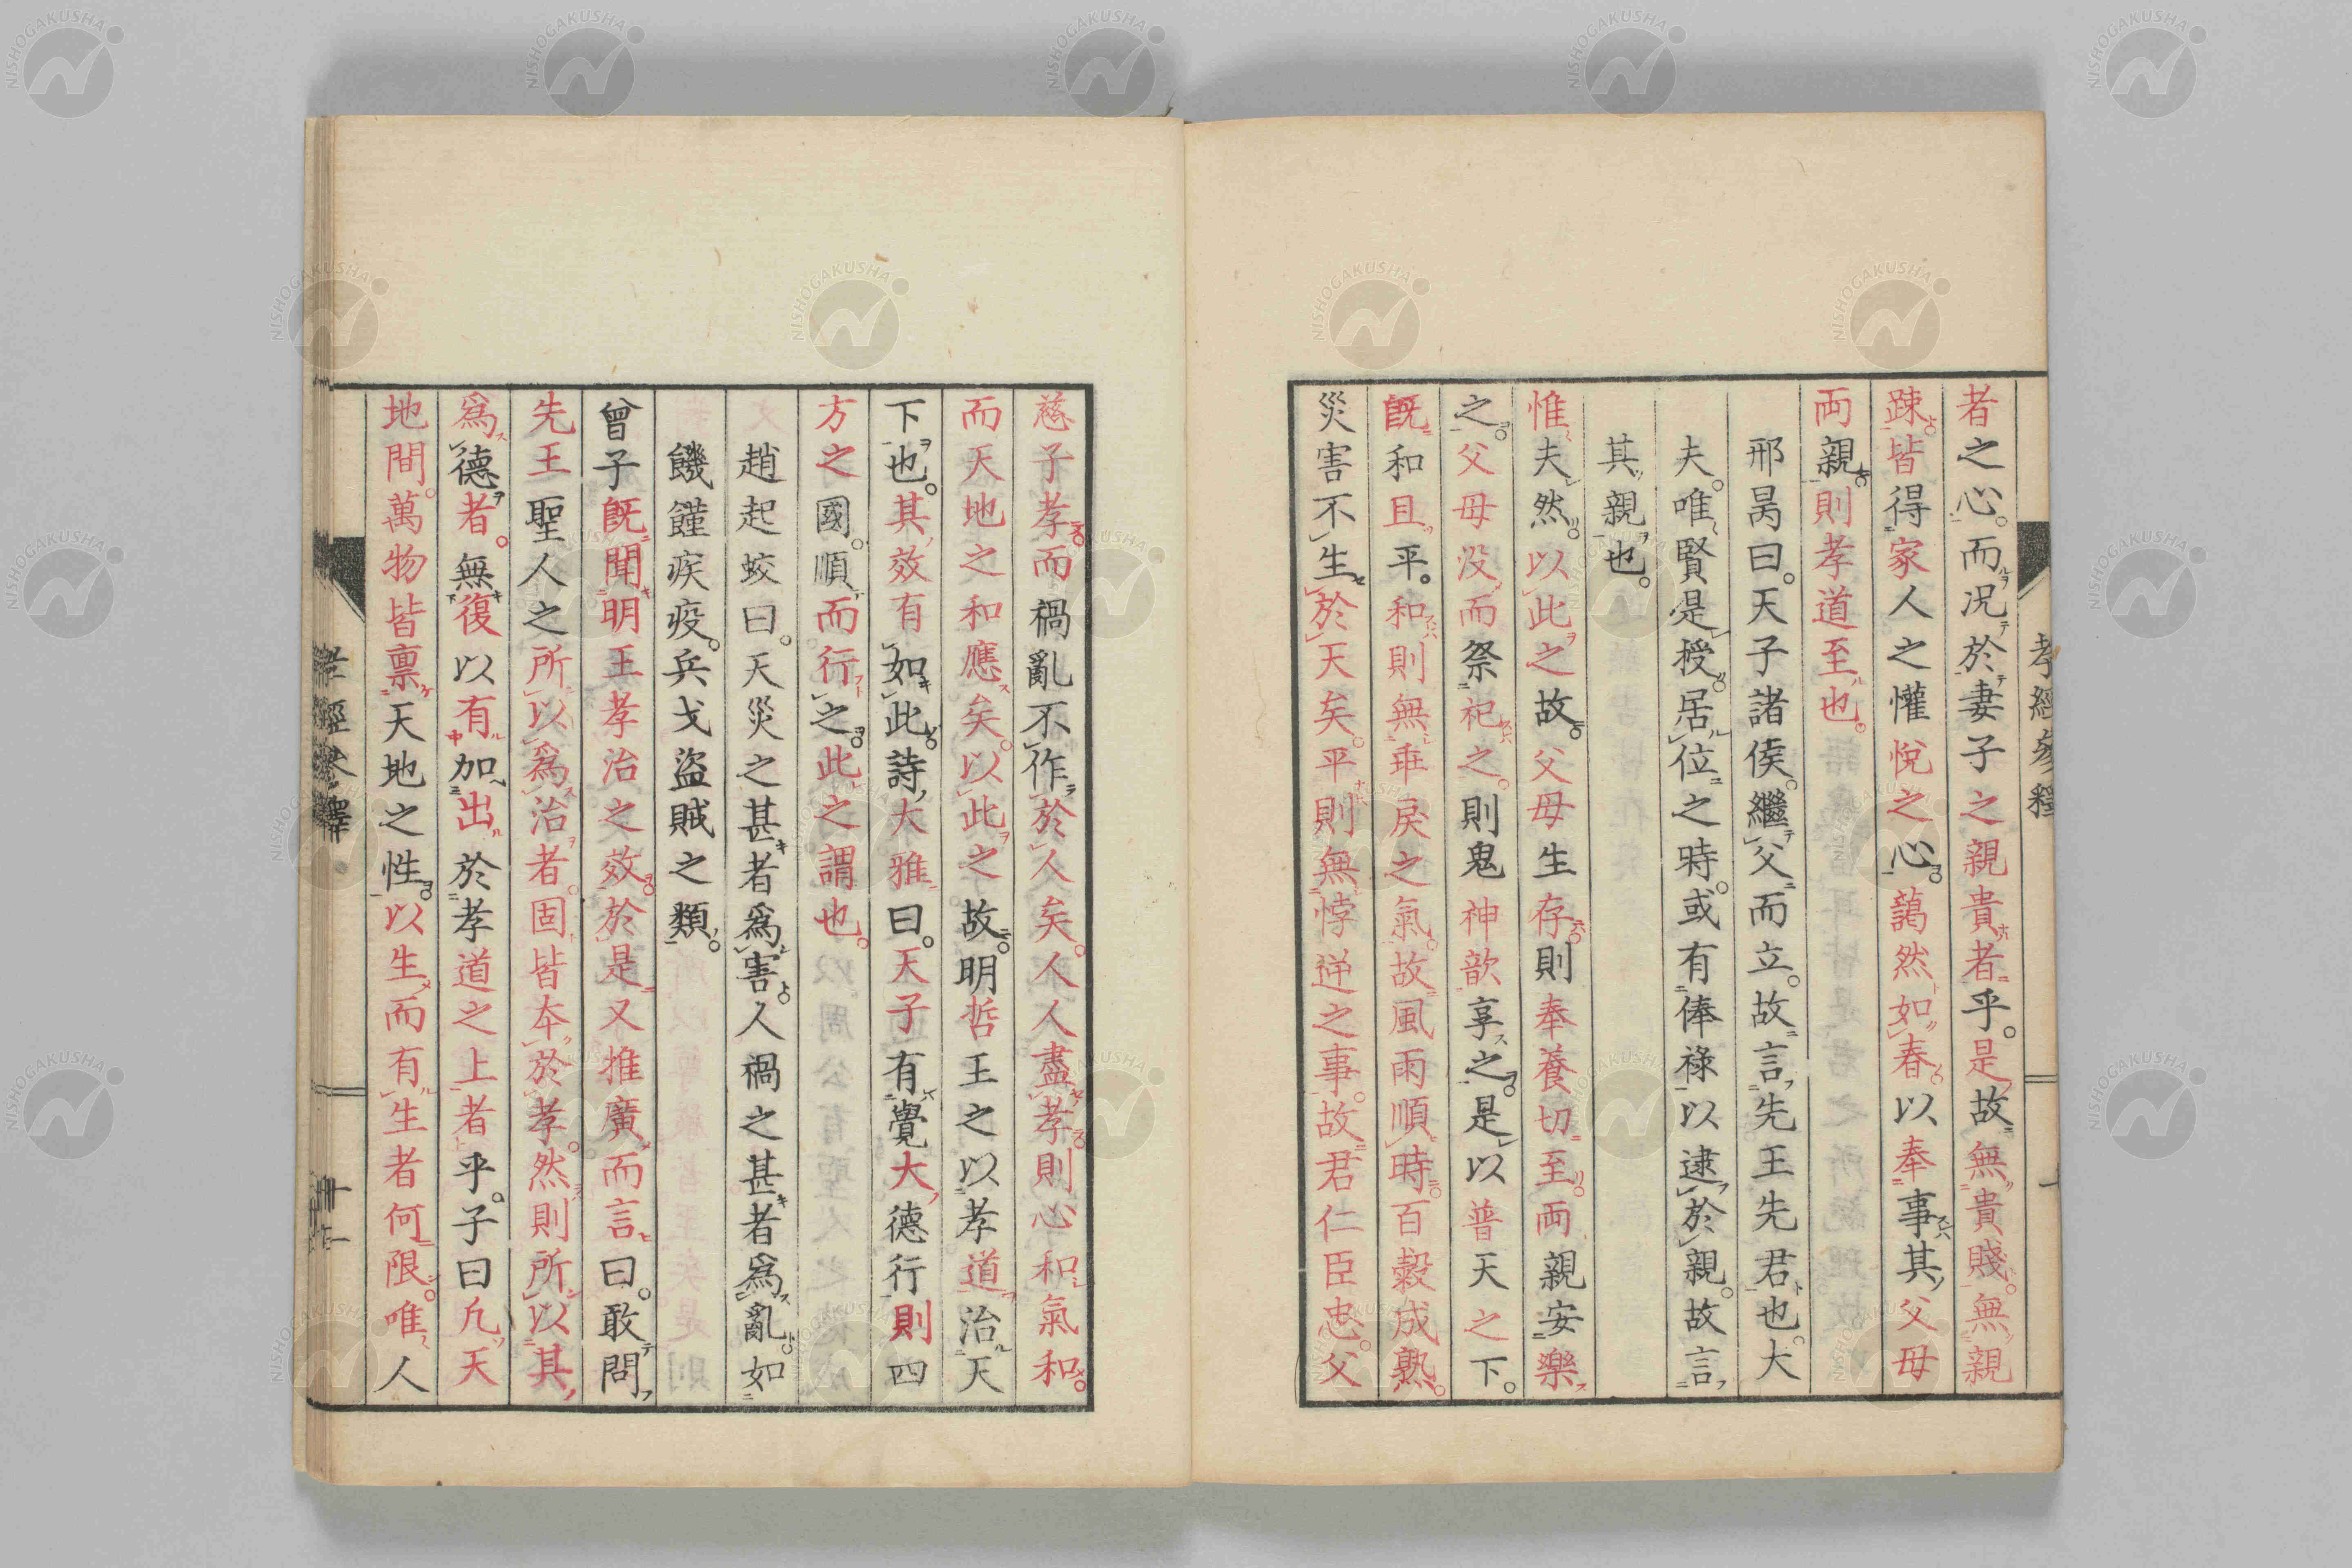 孝經參釋
者之心。而況於妻子之親貴者乎。是故無貴賤。無親
踈皆得家人之懽悅之心。藹然如春。以奉事其父母
両親則孝道至也。
邢昺曰。天子諸侯。繼父而立。故言先王先君也。大
夫。唯賢是授。居位之時。或有俸祿以逮於親。故言
其親也。
惟夫然。以此之故。父母生存則奉養切至。両親安樂
之。父母没而祭祀之。則鬼神歆享之。是以普天之下。
既和且平。和則無乖戻之氣。故風雨順時。百穀成熟。
災害不生於天矣。平則無悖逆之事。故君仁臣忠。父
慈子孝。而禍亂不作於人矣。人人盡孝。則心和氣和。
而天地之和應矣。以此之故。明哲王之以孝道治天
下也。其效有如此。詩大雅曰。天子有覺大德行則四
方之國。順而行之。此之謂也。
趙起蛟曰。天災之甚者爲害。人禍之甚者爲亂。如
饑饉疾疫。兵戈盜賊之類。
曾子既聞明王孝治之效。於是又推廣而言曰。敢問
先王聖人之所以爲治者。固皆本於孝。然則所以其
爲德者。無復以有加出於孝道之上者乎。子曰凢天
地間。萬物皆禀天地之性。以生而有生者何限。唯人
孝經參釋